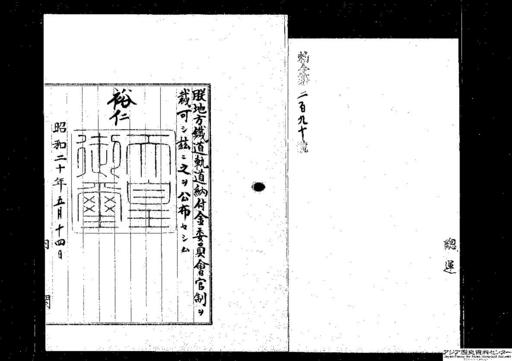 勅令第二百九十號
總運
朕地方鐵道軌道納付金委員會官制ヲ
裁可シ玆ニ之ヲ公布セシム
裕仁
天皇御璽
昭和二十年五月十四日
アジア歴史資料センター